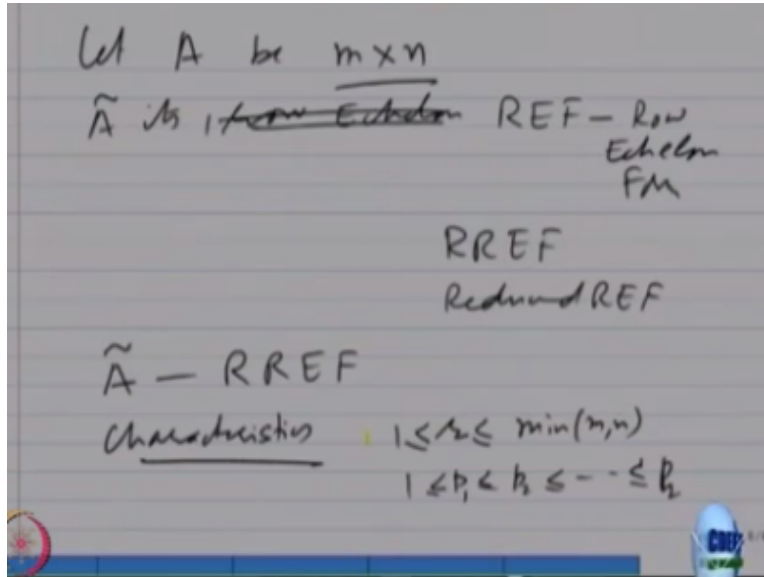 Let A be m×n
Ã its r̶o̶w̶ ̶E̶c̶h̶e̶l̶o̶n̶ REF – Row
Echelon
FM
RREF
Reduced REF
Ã — RREF
Characteristics 1 ≤ r ≤ min(m,n)
1 ≤ p₁ < p₂ ≤ -- ≤ pᵣ
CDEEP